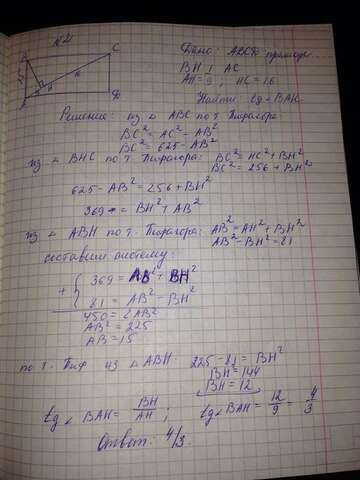 N2
B C
A D
H
9
16
Дано: ABCD прямоуг...
BH ⊥ AC
AH = 9; HC = 16
Найти: tg∠BAH
Решение: из △ ABC по т. Пифагора:
BC² = AC² - AB²
BC² = 625 - AB²
из △ BHC по т. Пифагора: BC² = HC² + BH²
BC² = 256 + BH²
625 - AB² = 256 + BH²
369 = BH² + AB²
из △ ABH по т. Пифагора: AB² = AH² + BH²
AB² - BH² = 81
составим систему:
+ { 369 = AB² + BH²
81 = AB² - BH²
450 = 2AB²
AB² = 225
AB = 15
по т. Пиф из △ ABH 225 - 81 = BH²
BH = 144
BH = 12
tg∠BAH = BH/AH ; tg∠BAH = 12/9 = 4/3
Ответ: 4/3.